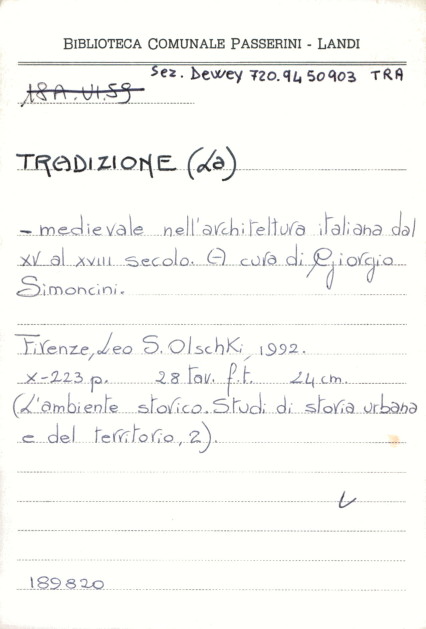 BIBLIOTECA COMUNALE PASSERINI - LANDI
Sez. Dewey 720.9450903 TRA
18A.VI.59
TRADIZIONE (La)
- medievale nell'architettura italiana dal
XV al XVIII secolo. (A) cura di Giorgio
Simoncini.
Firenze, Leo S. Olschki, 1992.
X-223 p. 28 tav. f.t. 24 cm.
(L'ambiente storico. Studi di storia urbana
e del territorio, 2).
189820